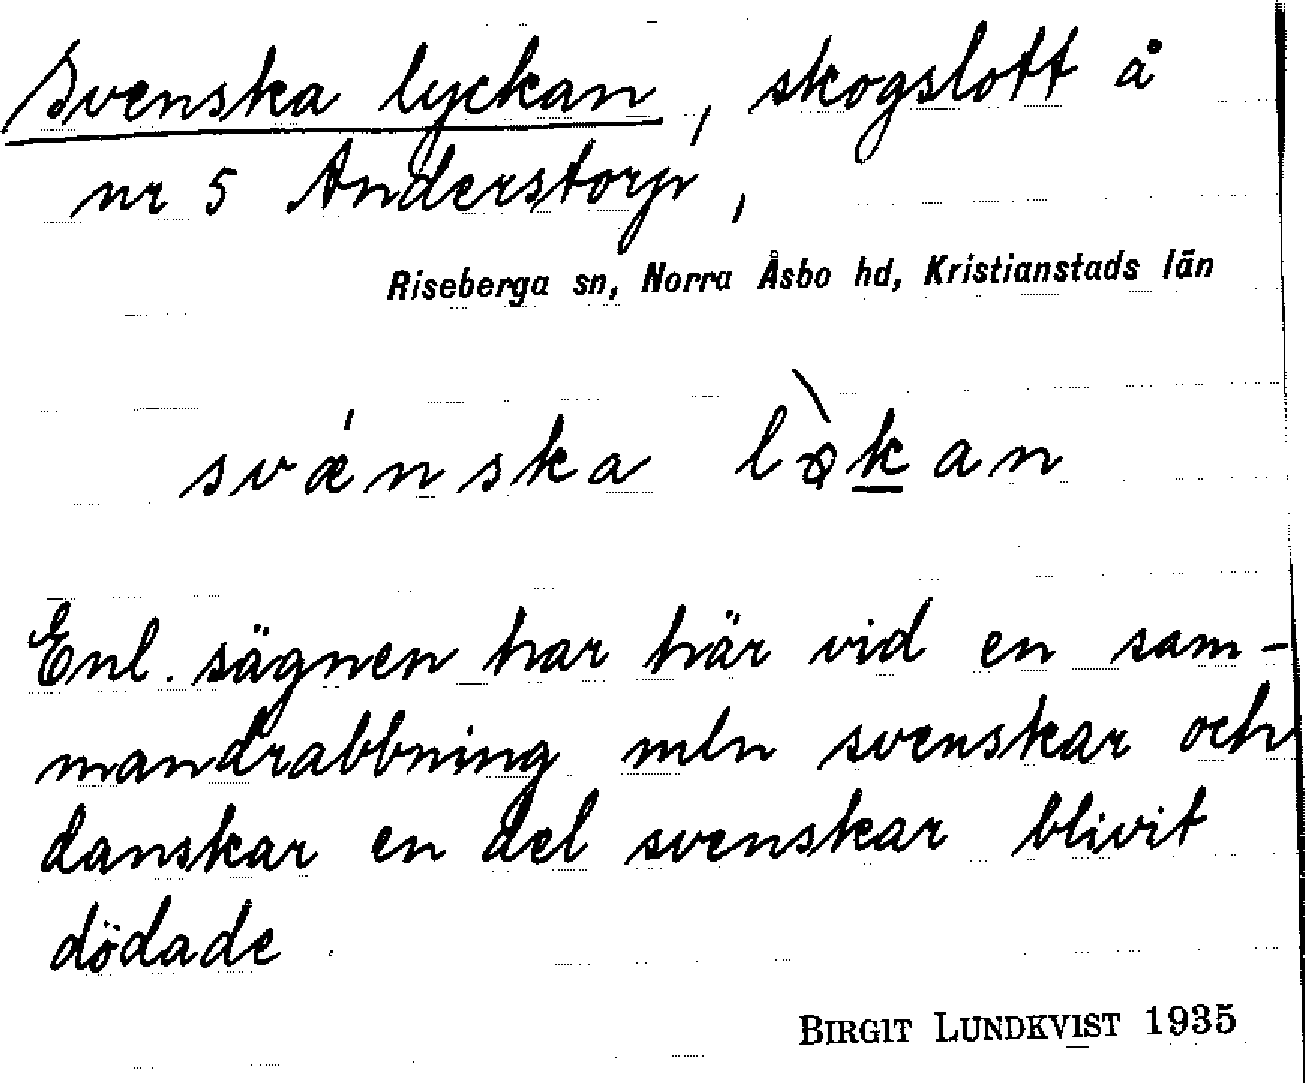 Svenska lyckan, skogslott å
nr 5 Anderstorp,
Riseberga sn, Norra Åsbo hd, Kristianstads län
svǽnska
Enl. sägnen har här vid en sam-
mandrabbning mln svenskar och
danskar en del svenskar blivit
dödade.
BIRGIT LUNDKVIST 1935